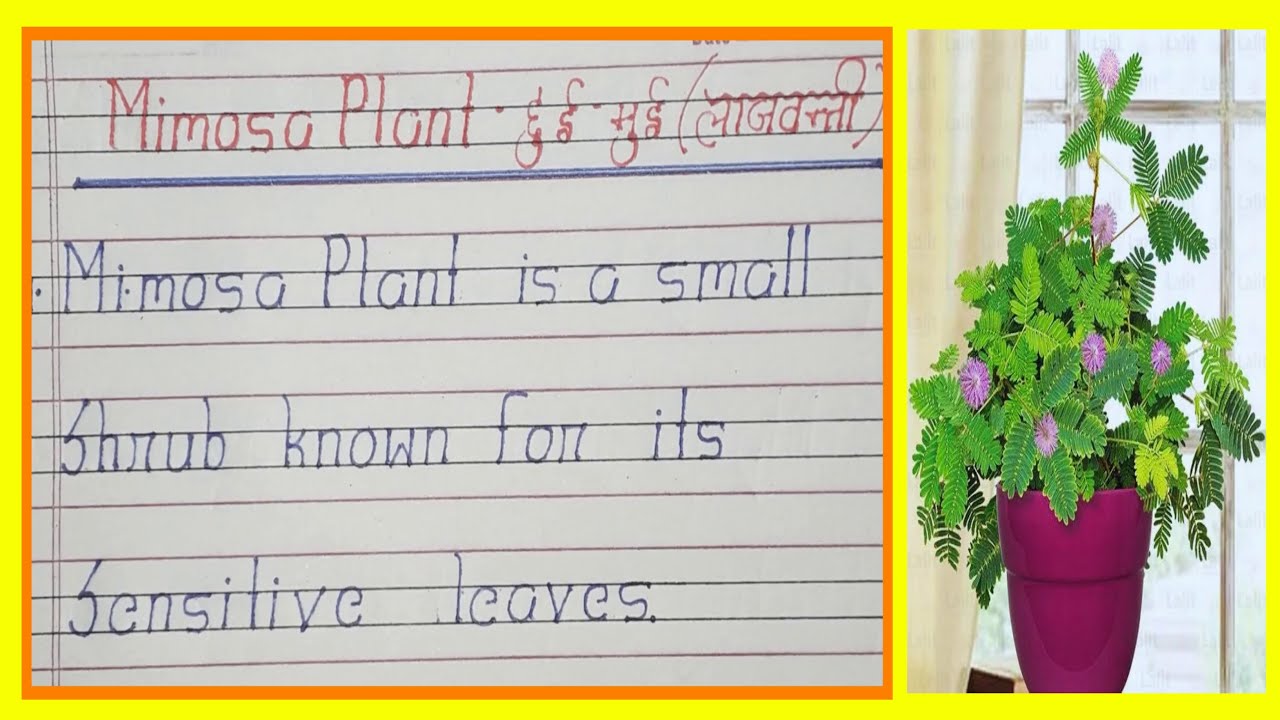 Mimosa Plant - छुई-मुई (लाजवन्ती)
Mimosa Plant is a small
Shrub known for its
Sensitive leaves.
Lalit